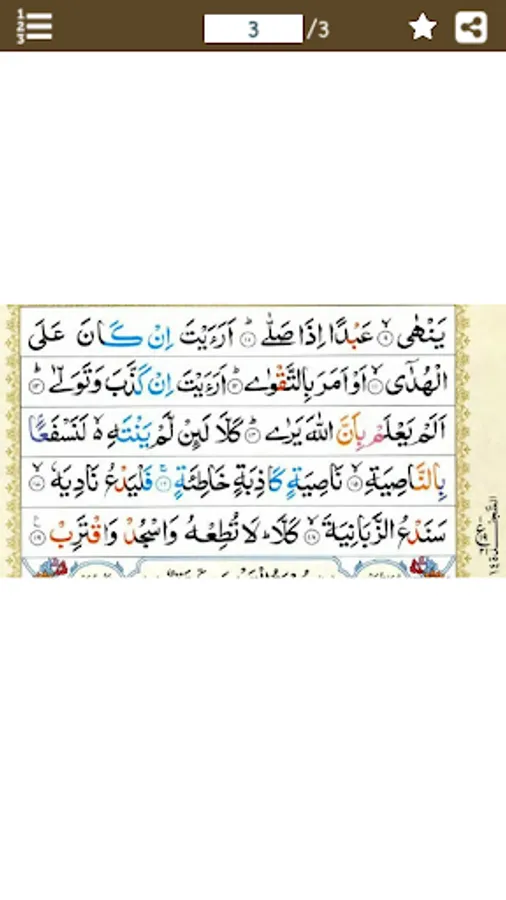 3 /3
يَنْهٰى ۙ﴿۹﴾ عَبْدًا اِذَا صَلّٰى ؕ﴿۱۰﴾ اَرَءَيْتَ اِنْ كَانَ عَلَى
الْهُدٰٓى ۙ﴿۱۱﴾ اَوْ اَمَرَ بِالتَّقْوٰى ؕ﴿۱۲﴾ اَرَءَيْتَ اِنْ كَذَّبَ وَتَوَلّٰى ؕ﴿۱۳﴾
اَلَمْ يَعْلَمْ بِاَنَّ اللّٰهَ يَرٰى ؕ﴿۱۴﴾ كَلَّا لَئِنْ لَّمْ يَنْتَهِ ۙ۬ لَنَسْفَعًۢا
بِالنَّاصِيَةِ ۙ﴿۱۵﴾ نَاصِيَةٍ كَاذِبَةٍ خَاطِئَةٍ ۚ﴿۱۶﴾ فَلْيَدْعُ نَادِيَهٗ ۙ﴿۱۷﴾
سَنَدْعُ الزَّبَانِيَةَ ۙ﴿۱۸﴾ كَلَّا ؕ لَا تُطِعْهُ وَاسْجُدْ وَاقْتَرِبْ ۩﴿۱۹﴾
السَّجْدَة ١٤